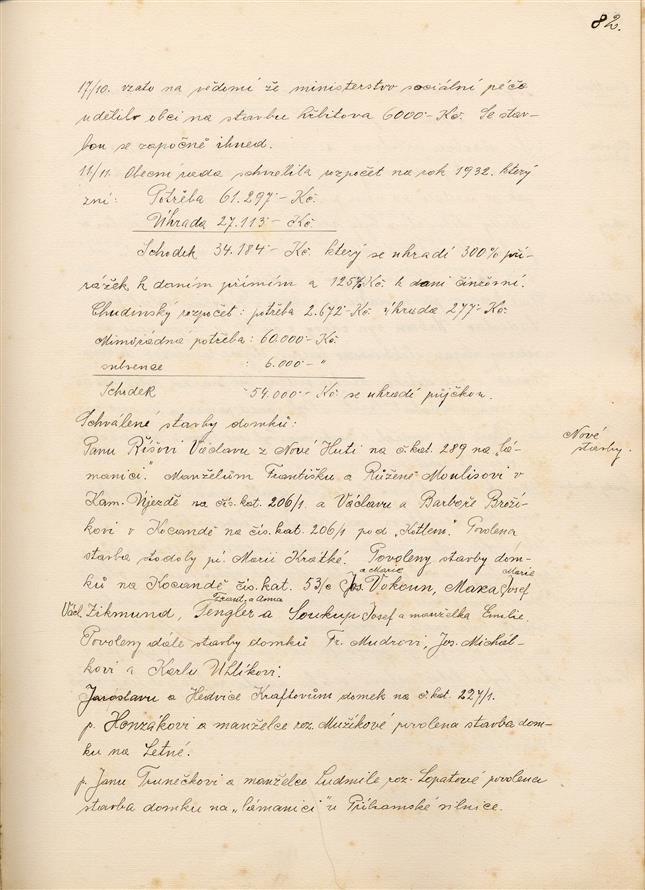 82.
17/10. vzato na vědomí že ministerstvo sociální péče
udělilo obci na stavbu hřbitova 6000·- Kč. Se stav-
bou se započně ihned.
11/11. Obecní rada schvetila rozpočet na rok 1932. který
zní: Potřeba 61.297·- Kč.
Úhrada 27.113·- Kč.
Schodek 34.184·- Kč. který se uhradí 300% při-
rážek k daním přímím a 125% Kč. k dani činžovní.
Chudinský rozpočet: potřeba 2.672·- Kč. úhrada 277·- Kč.
Mimořádna potřeba: 60.000·- Kč.
subvense : 6.000·- "
Schodek ·54.000·- Kč. se uhradí půjčkou.
Schválené stavby domků:
Nové
stavby.
Panu Říšovi Václavu z Nové Huti na č. kat. 289 na „lá-
manici." Manželům Františku a Růženě Moulisovi v
Kam. Újezdě na čís. kat. 206/1 a Václavu a Barboře Broží-
kovi v Kocandě na čís. kat. 206/1 pod „Kotlem." Povolena
stavba stodoby pí. Marii Kratké. Povoleny stavby dom-
a Marie Marie
ků na Kocandě čís. kat. 53/c Jos. Vokoun, Maxa Josef
Frant. a Anna
Václ. Zikmund, Fengler a Soukup Josef a manželka Emilie.
Povoleny dále stavby domků Fr. Mudrovi, Jos. Michál-
kovi a Karlu Uhlíkovi.
Jaroslavu a Hedvice Kraftovům domek na č. kat. 227/1.
p. Honzákovi a manželce roz. Mužíkové povolena stavba dom-
ku na Letné.
p. Janu Trunečkovi a manželce Ludmile roz. Lopatové povolena
stavba domku na „lámanici" u Příbramské silnice.